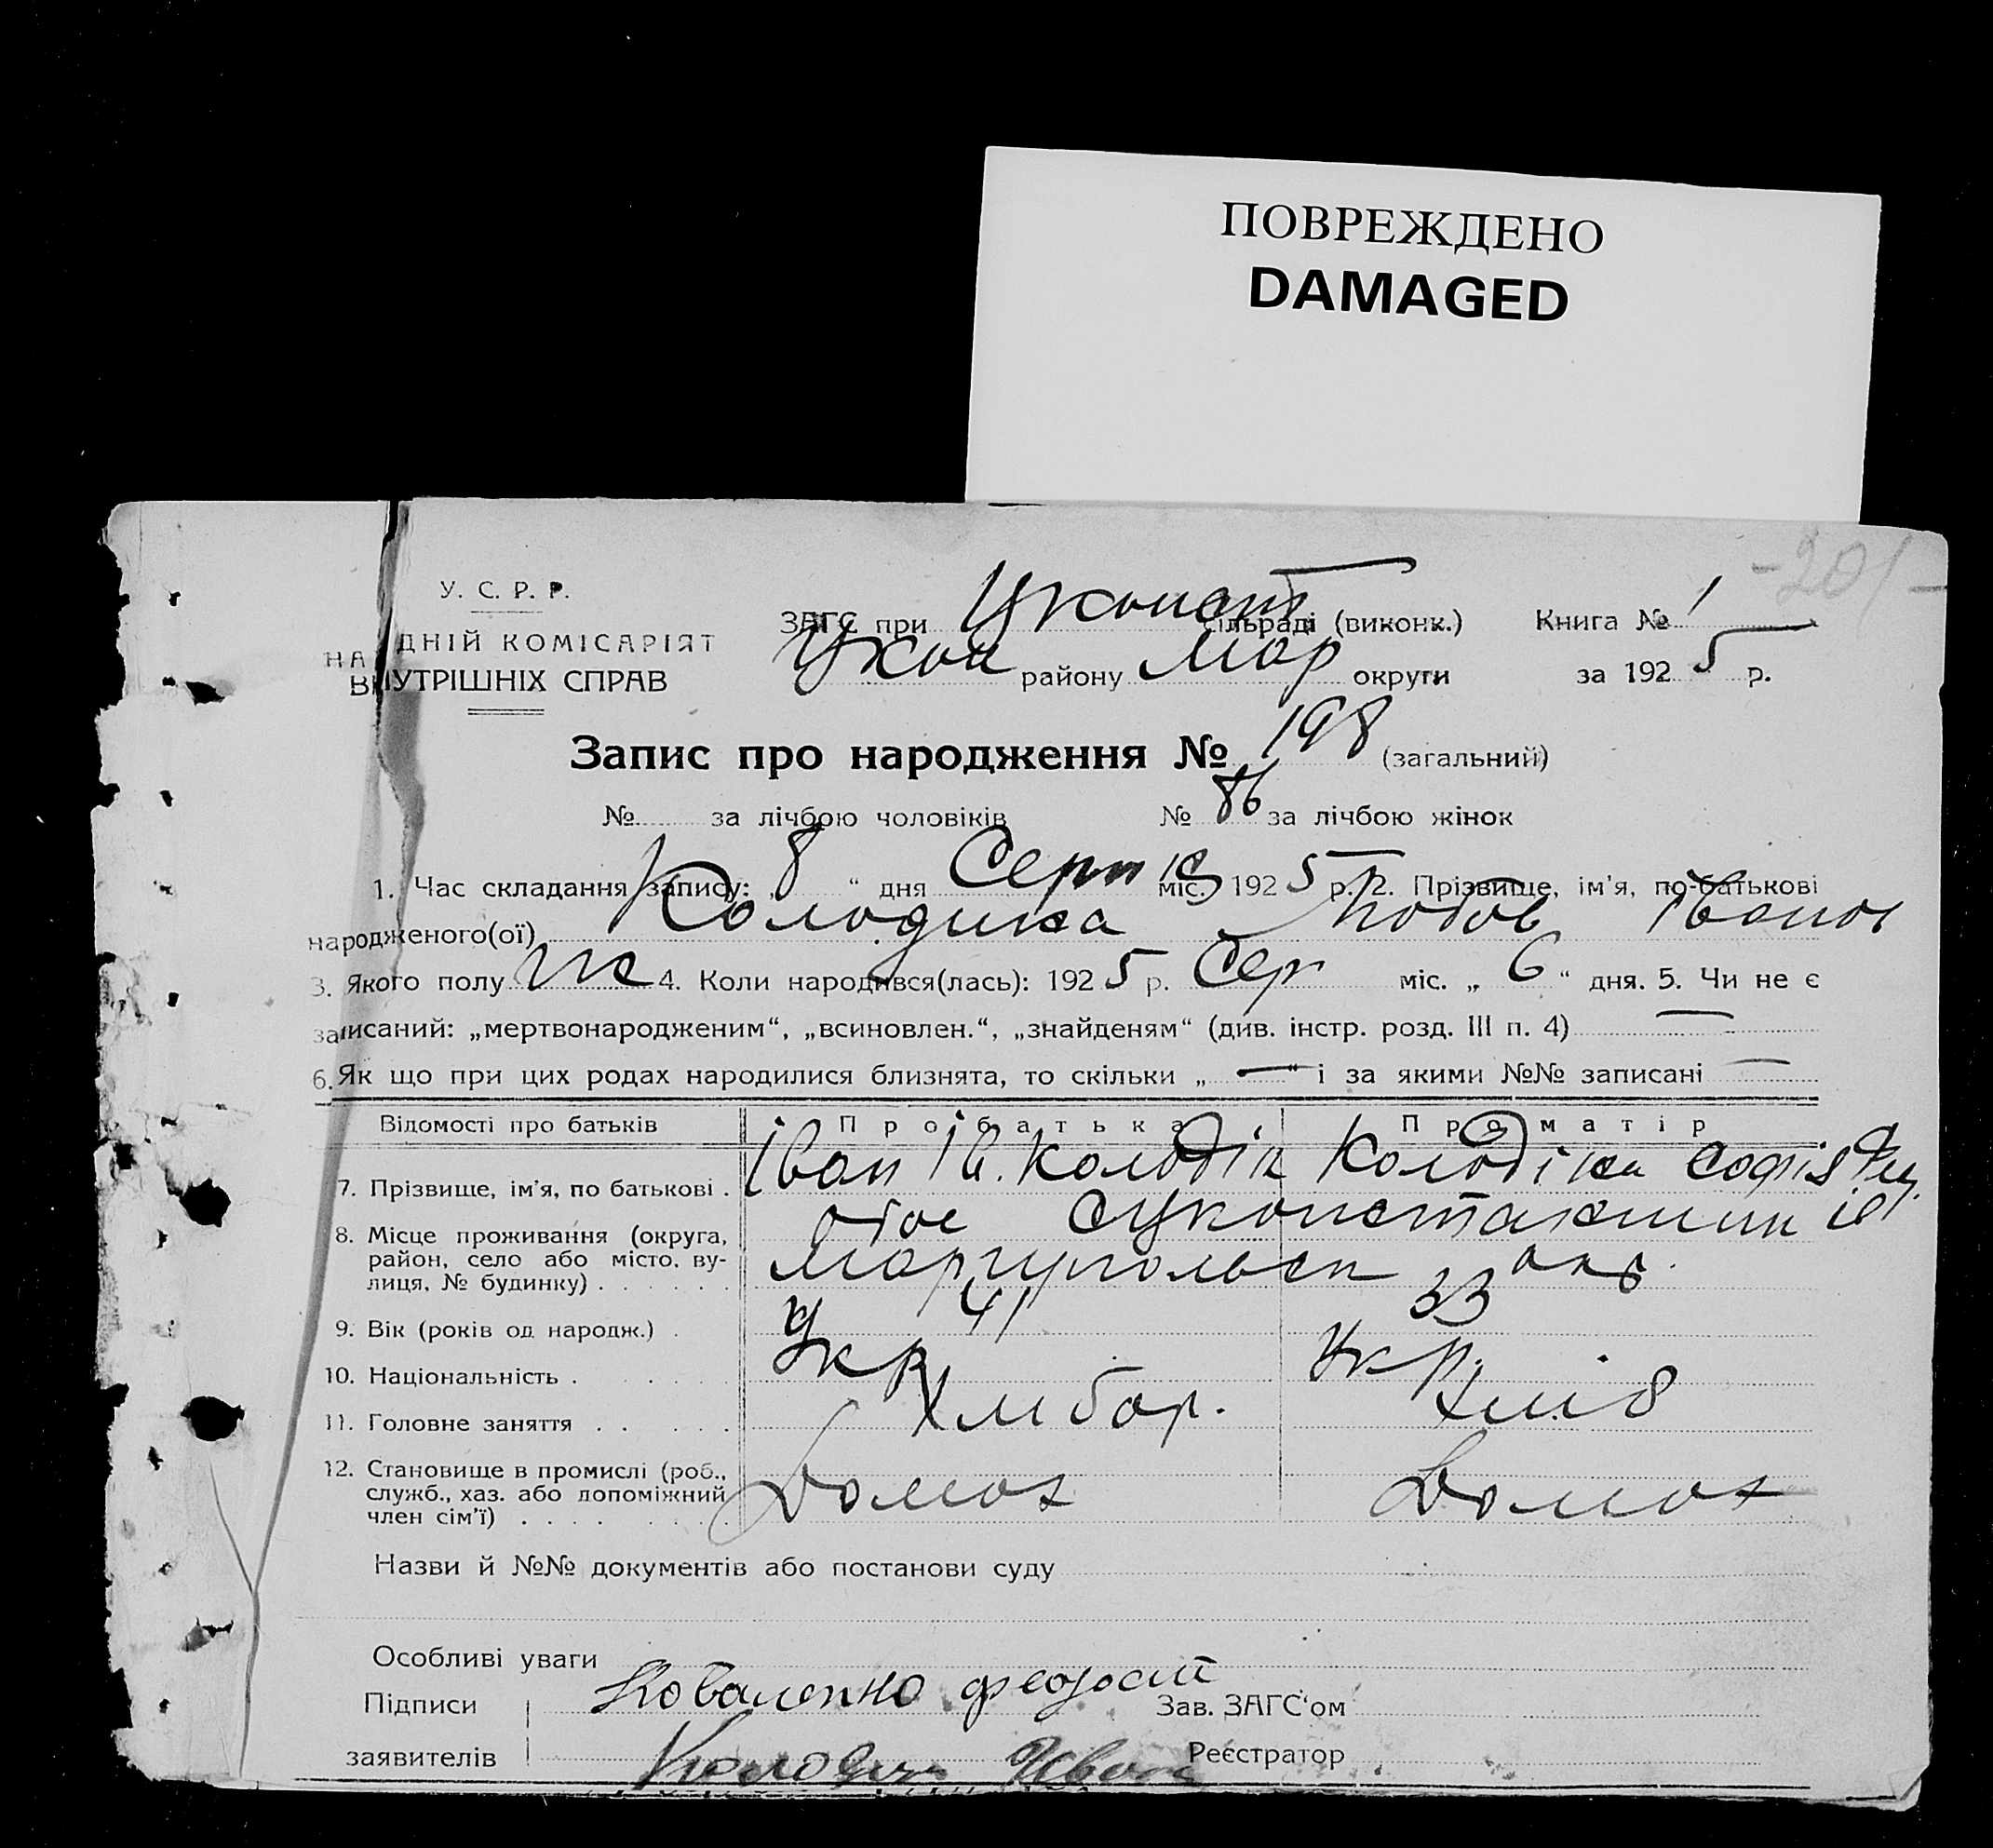 ПОВРЕЖДЕНО
DAMAGED
-201-
У. С. Р. Р.
НА ДНІЙ КОМІСАРІЯТ
ВНУТРІШНІХ СПРАВ
ЗАГС при Цконст сільраді (виконк.) Книга № 1
Цкон району Мар округи за 1925 р.
Запис про народження № 198 (загальний)
№ за лічбою чоловіків № 86 за лічбою жінок
1. Час складання запису: „ 8 “ дня Серп міс. 1925 р. 2. Прізвище, ім'я, по-батькові
народженого(ої) Колодика Любов Іванов
3. Якого полу ж 4. Коли народився(лась): 1925 р. Сер міс. „ 6 “ дня. 5. Чи не є
записаний: „мертвонародженим“, „всиновлен.“, „знайденям“ (див. інстр. розд. III п. 4) —
6. Як що при цих родах народилися близнята, то скільки „ — “ і за якими №№ записані —
Відомості про батьків Про батька Про матір
7. Прізвище, ім'я, по батькові . Іван Ів. Колодік Колодіка Софія
8. Місце проживання (округа,
район, село або місто, ву-
лиця, № будинку) . . . . . . Маріупольск окр.
9. Вік (років од народж.) . 41 33
10. Національність . . . . . . Укр Укр.
11. Головне заняття . . . . . . Хлібор. Хліб
12. Становище в промислі (роб.,
служб., хаз. або допоміжний
член сім'ї) . . . . . . . . Домог Домог
Назви й №№ документів або постанови суду
Особливі уваги
Підписи Коваленко Феодосій Зав. ЗАГС'ом
заявителів Колодик Иван Реєстратор